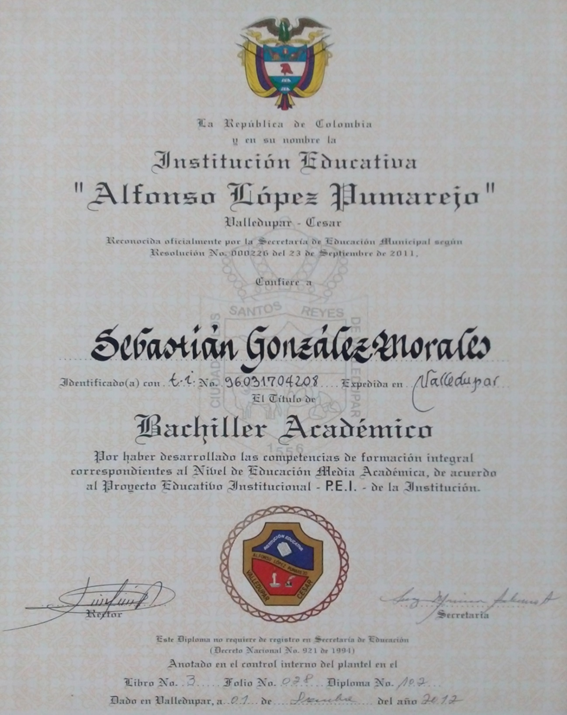 La República de Colombia
y en su nombre la
Institución Educativa
"Alfonso López Pumarejo"
Valledupar - Cesar
Reconocida oficialmente por la Secretaría de Educación Municipal según
Resolución No. 000226 del 23 de Septiembre de 2011,
Confiere a
SANTOS REYES
CIUDAD DE LOS
DE VALLEDUPAR
Sebastián González Morales
Identificado(a) con t.i. No. 96031704208 Expedida en Valledupar
El Título de
Bachiller Académico
1550
Por haber desarrollado las competencias de formación integral
correspondientes al Nivel de Educación Media Académica, de acuerdo
al Proyecto Educativo Institucional - P.E.I. - de la Institución.
INSTITUCIÓN EDUCATIVA
ALFONSO LÓPEZ PUMAREJO
VALLEDUPAR CESAR
Rector
Secretaria
Este Diploma no requiere de registro en Secretaría de Educación
(Decreto Nacional No. 921 de 1994)
Anotado en el control interno del plantel en el
Libro No. 3 Folio No. 028 Diploma No. 102
Dado en Valledupar, a 01 de Diciembre del año 2012